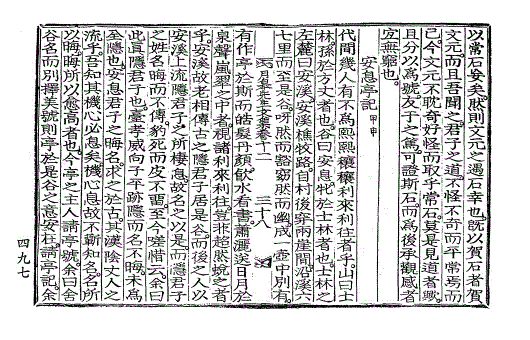 以常石安矣然則文元之遇石幸也旣以賀石者賀
文元而且吾聞之君子之道不怪不奇而平常焉而
已今文元不耽奇好怪而取乎常石莫是見道者歟
且分以爲號友子之篤可證斯石而爲後承觀感者
宜無窮也
安息亭記 甲申
代間幾人有不爲熙熙穰穰利來利往者乎山曰士
林孫於方丈者也谷曰安息牝於士林者也士林之
左麓曰安溪安溪樵牧路自村後穿兩崖間沿溪六
七里而至是谷呀然而豁窈然而幽成一壺中別有
卷十二 三十八
有作亭於斯而皓髮丹顏飮水看書瀟灑送日月於
泉聲嵐翠之中者視諸利來利往豈非超然蛻之者
乎安溪故老相傳古之隱君子居是谷而後之人以
安溪上流隱君子之所棲息故名之以是而隱君子
之姓名晦而不傳豹死而皮不畱至今嗟惜云余曰
此眞隱君子也臺孝威向子平跡隱而名不晦未爲
至隱也安息君子之晦名求之於古其漢陰丈人之
流乎吾知其機心必息矣機心息故不蘄知名名所
以晦晦所以愈高者也今亭之主人請亭號余曰舍
谷名而別擇美號則亭於是谷之意安在請亭記余
四九七